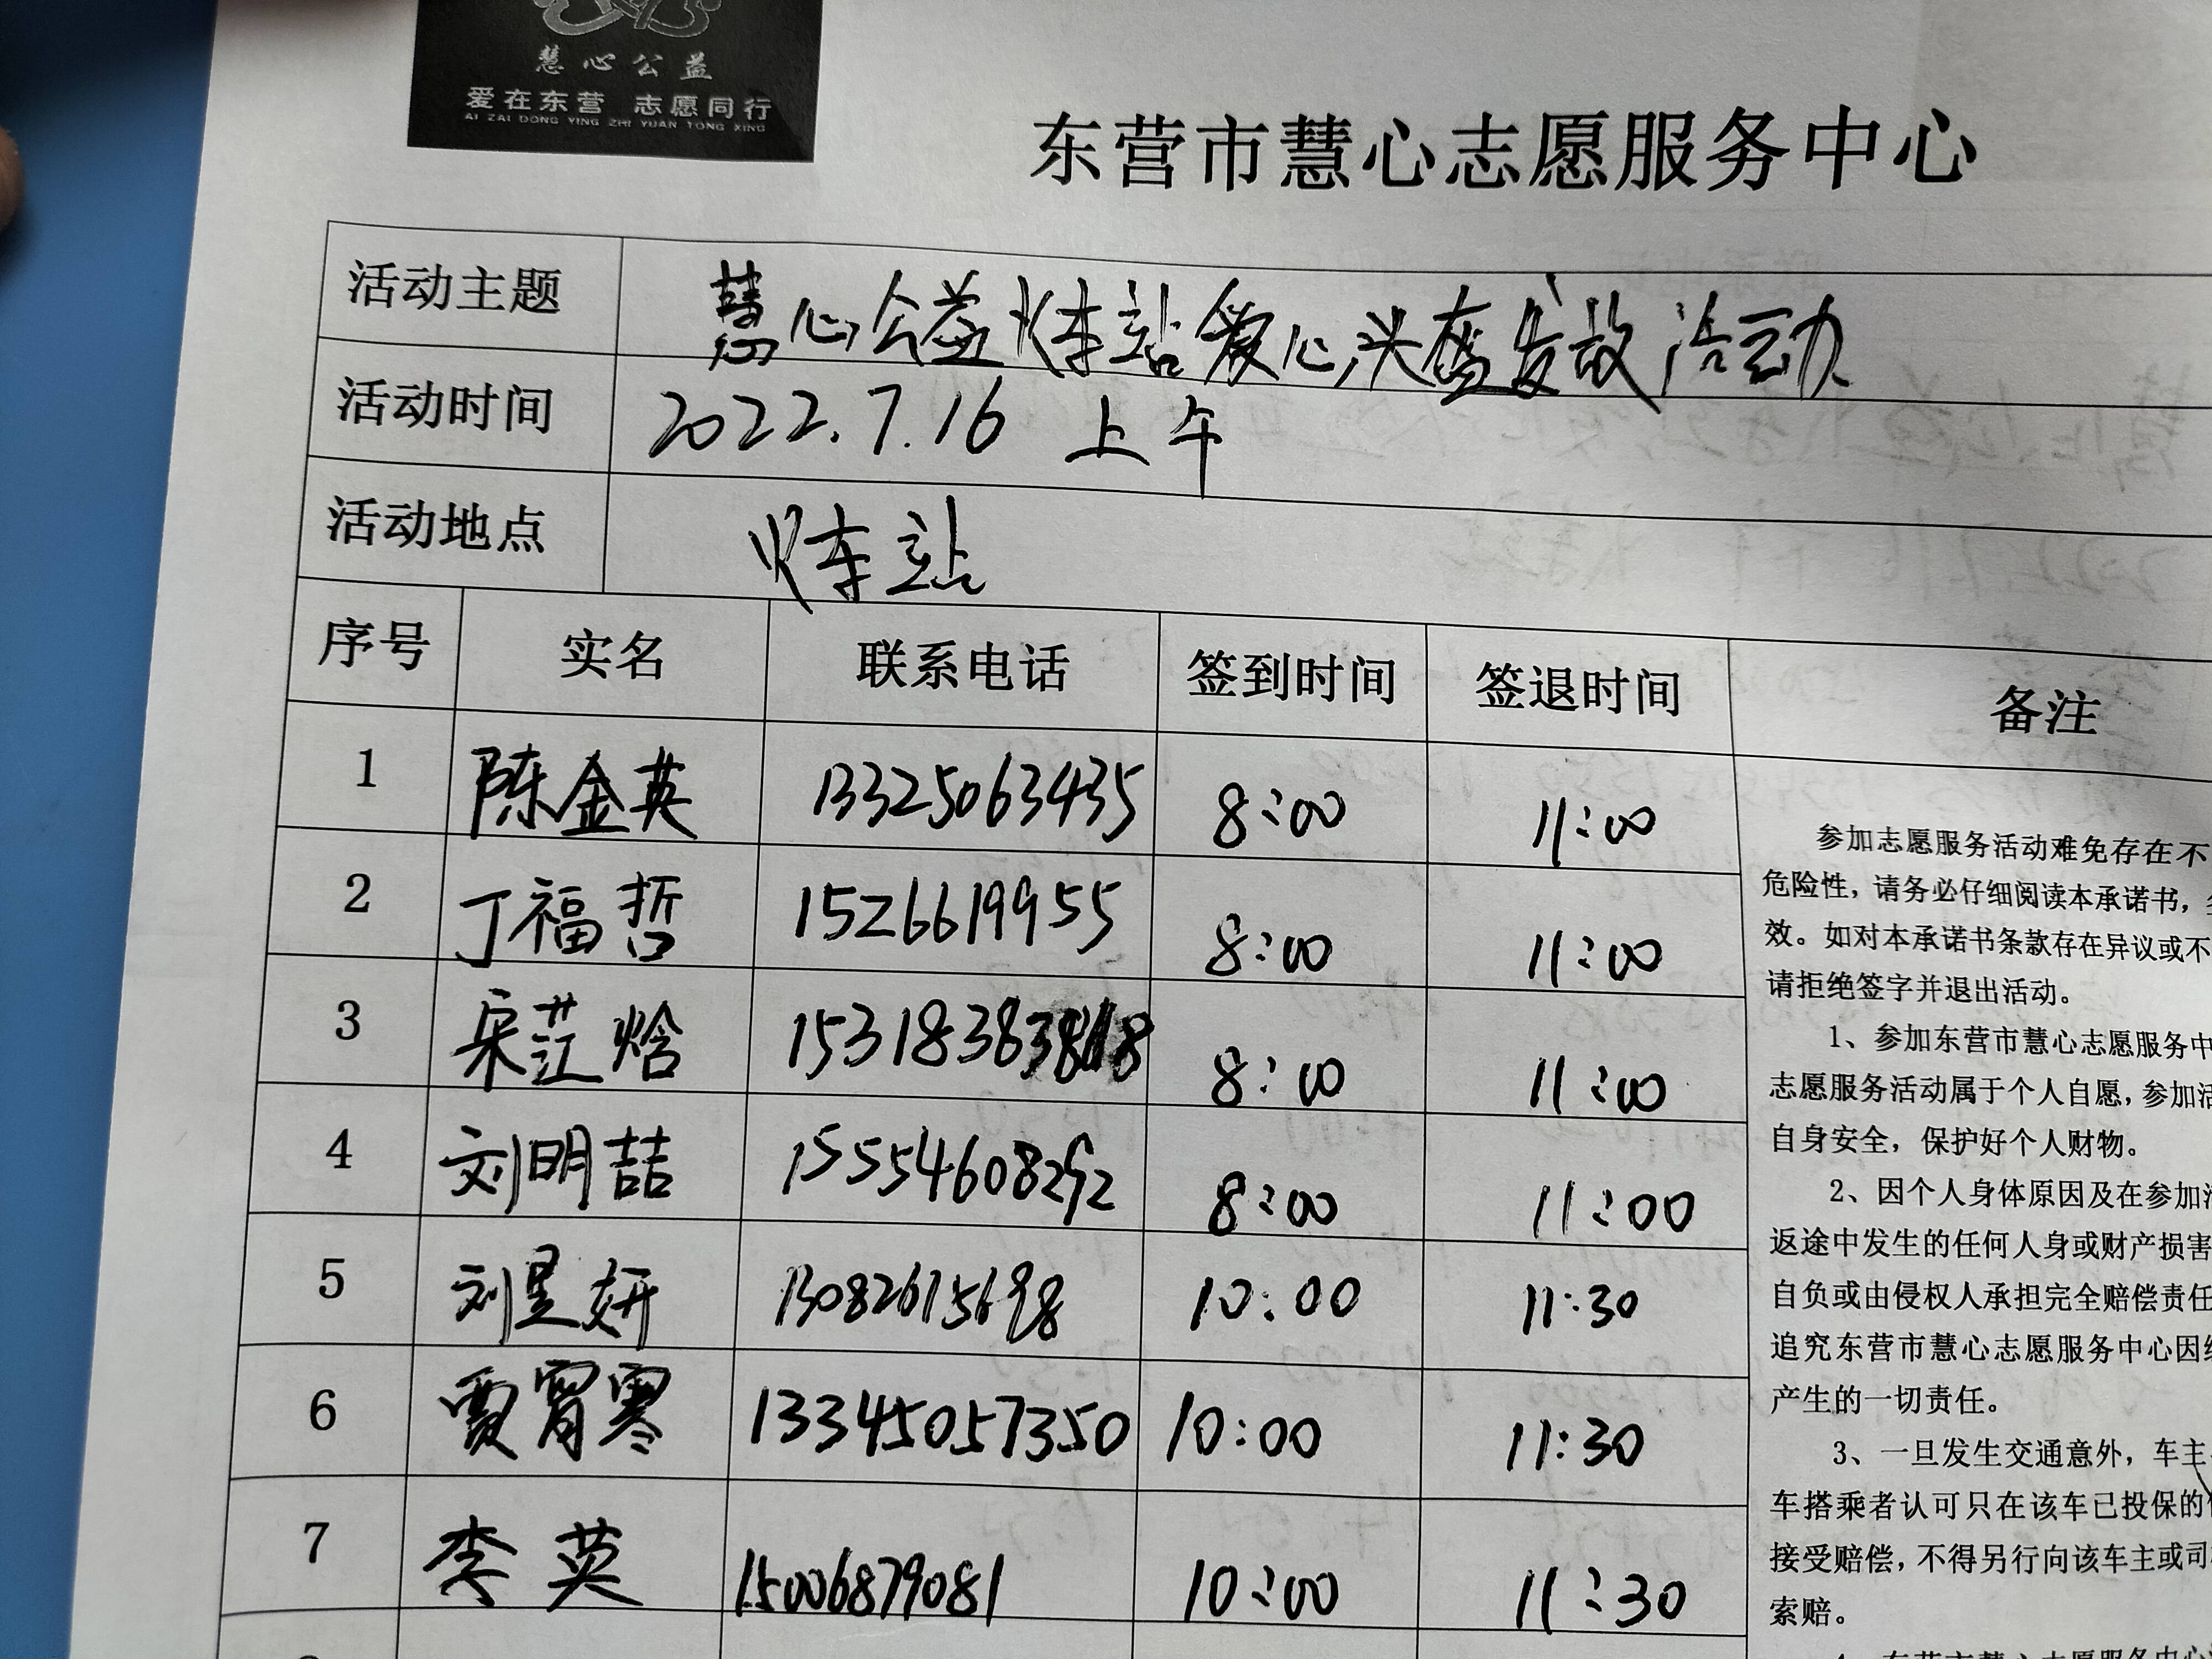 慧心公益
爱在东营 志愿同行
AI ZAI DONG YING ZHI YUAN TONG XING
东营市慧心志愿服务中心
活动主题 慧心公益火车站爱心头盔发放活动
活动时间 2022.7.16 上午
活动地点 火车站
序号 实名 联系电话 签到时间 签退时间 备注
1 陈金英 13325063435 8:00 11:00
2 丁福哲 15266199955 8:00 11:00
3 宋茳焓 8:00 11:00
4 刘明喆 15554608292 8:00 11:00
5 刘昱妍 13082615698 10:00 11:30
6 贾胃寒 13345057350 10:00 11:30
7 李英 15006879081 10:00 11:30
参加志愿服务活动难免存在不
危险性，请务必仔细阅读本承诺书，
效。如对本承诺书条款存在异议或不
请拒绝签字并退出活动。
1、参加东营市慧心志愿服务中
志愿服务活动属于个人自愿，参加活
自身安全，保护好个人财物。
2、因个人身体原因及在参加活
返途中发生的任何人身或财产损害
自负或由侵权人承担完全赔偿责任
追究东营市慧心志愿服务中心因组
产生的一切责任。
3、一旦发生交通意外，车主
车搭乘者认可只在该车已投保的
接受赔偿，不得另行向该车主或司
索赔。